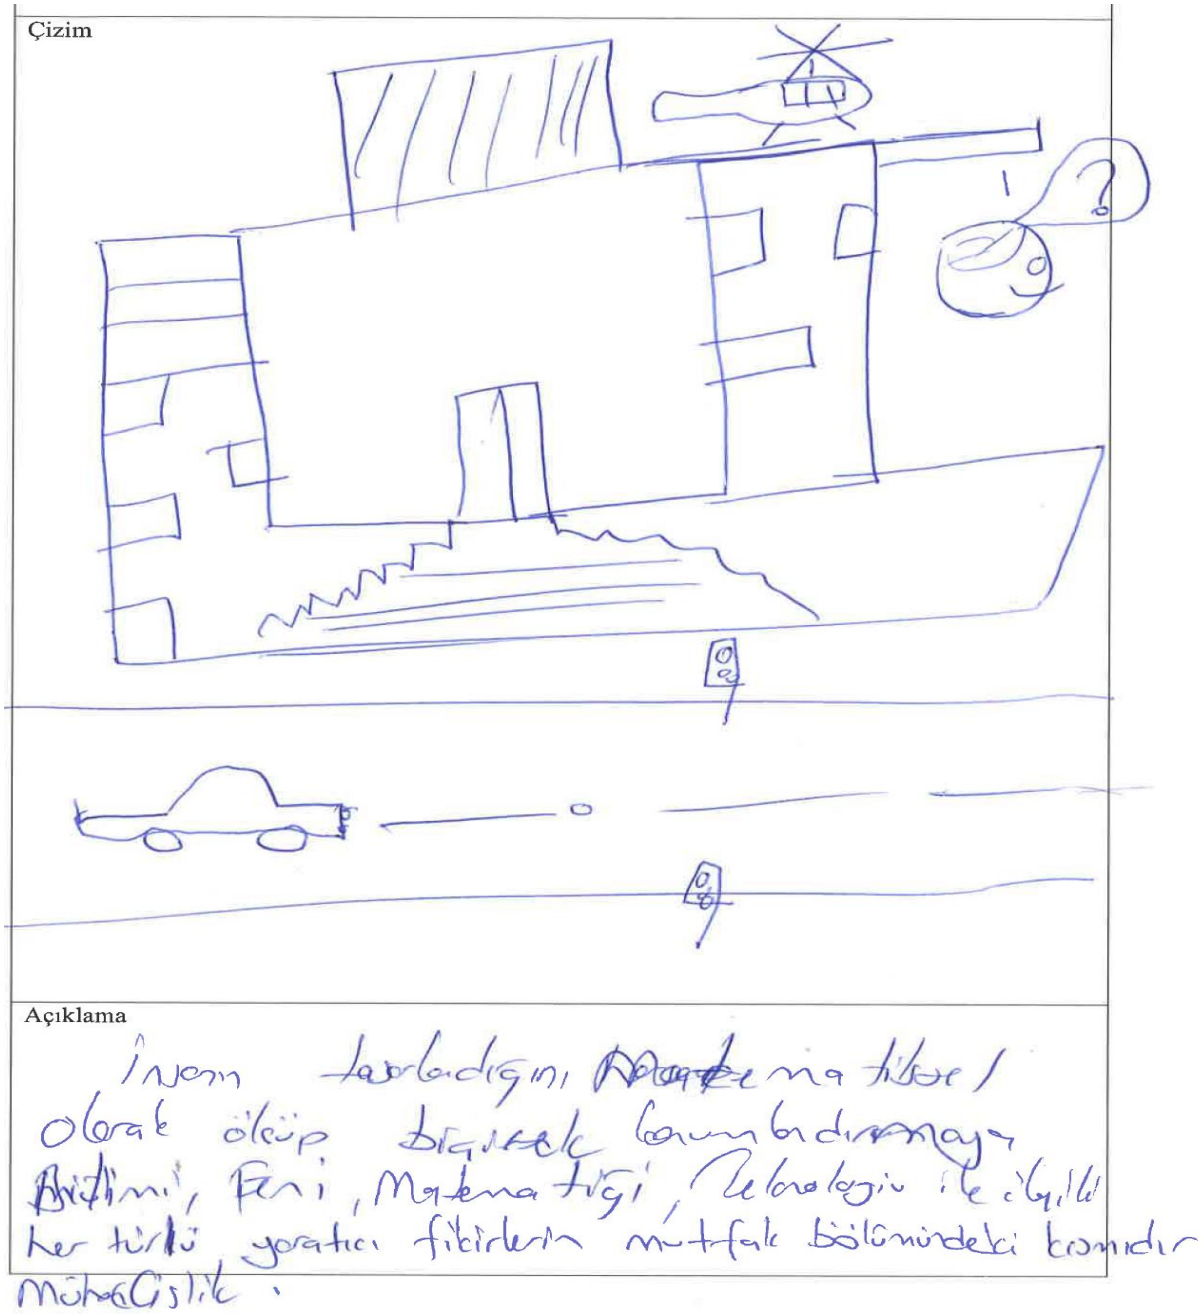 Çizim
?
Açıklama
İnsan tasarladığını Matematiksel
olarak ölçüp biçerek
Bilimi, Feni, Matematiği, Teknolojiv ile ilgili
her türlü yaratıcı fikirlerin mutfak bölümündeki kısmıdır